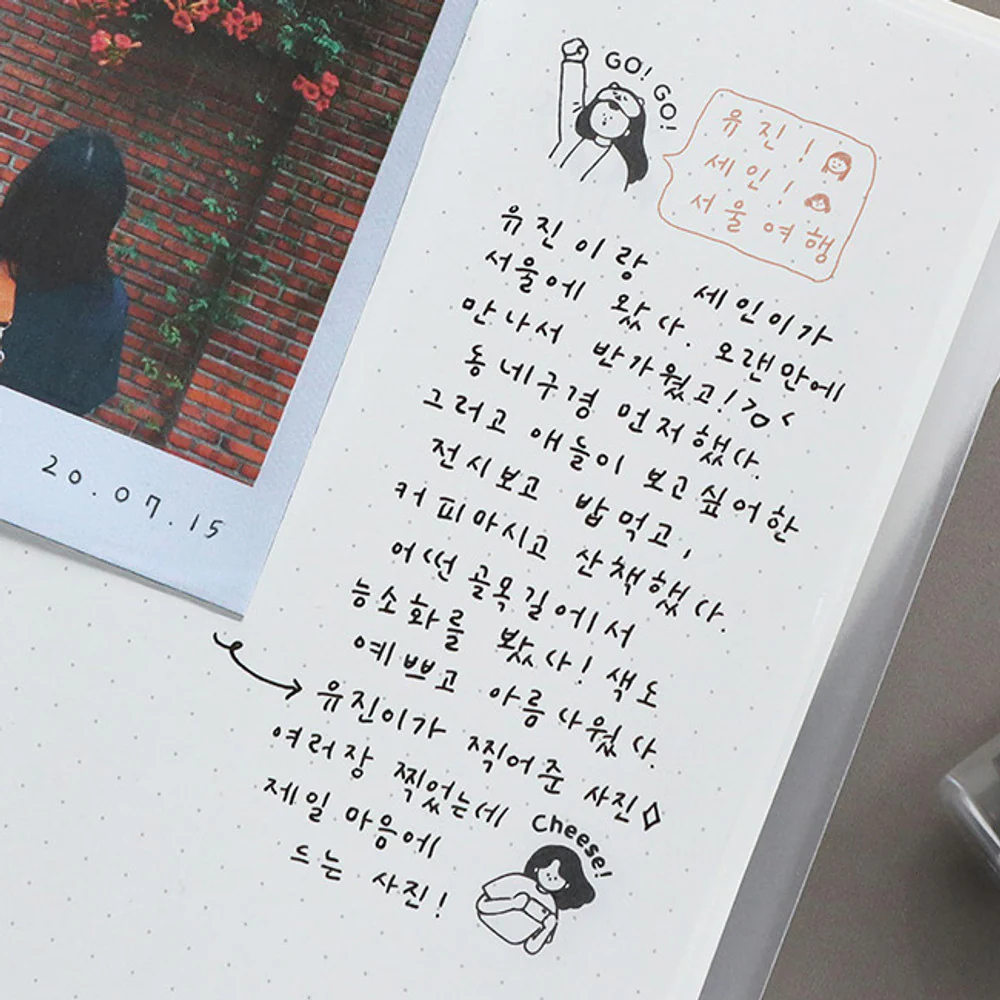 GO! GO!
유진!
세인!
서울여행
유진이랑 세인이가
서울에 왔다. 오랜만에
만나서 반가웠고!>o<
동네구경 먼저했다.
그러고 애들이 보고싶어한
전시보고 밥먹고,
커피마시고 산책했다.
어떤 골목길에서
능소화를 봤다! 색도
예쁘고 아름다웠다.
20.07.15
유진이가 찍어준 사진◇
여러장 찍었는데
제일 마음에
드는 사진!
Cheese!